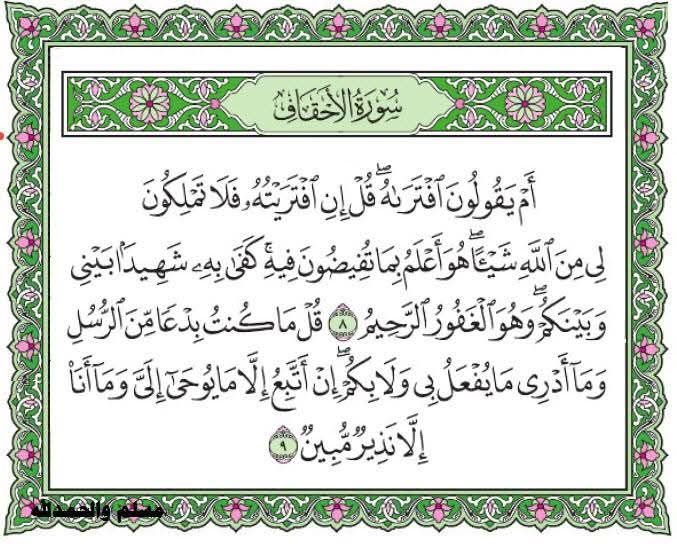 سُورَةُ الأَحْقَافِ
أَمْ يَقُولُونَ ٱفْتَرَىٰهُ ۖ قُلْ إِنِ ٱفْتَرَيْتُهُۥ فَلَا تَمْلِكُونَ
لِى مِنَ ٱللَّهِ شَيْـًٔا ۖ هُوَ أَعْلَمُ بِمَا تُفِيضُونَ فِيهِ ۚ كَفَىٰ بِهِۦ شَهِيدًۢا بَيْنِى
وَبَيْنَكُمْ ۖ وَهُوَ ٱلْغَفُورُ ٱلرَّحِيمُ ٨ قُلْ مَا كُنتُ بِدْعًا مِّنَ ٱلرُّسُلِ
وَمَآ أَدْرِى مَا يُفْعَلُ بِى وَلَا بِكُمْ ۖ إِنْ أَتَّبِعُ إِلَّا مَا يُوحَىٰٓ إِلَىَّ وَمَآ أَنَا۠
إِلَّا نَذِيرٌ مُّبِينٌ ٩
مسلم والحمدلله